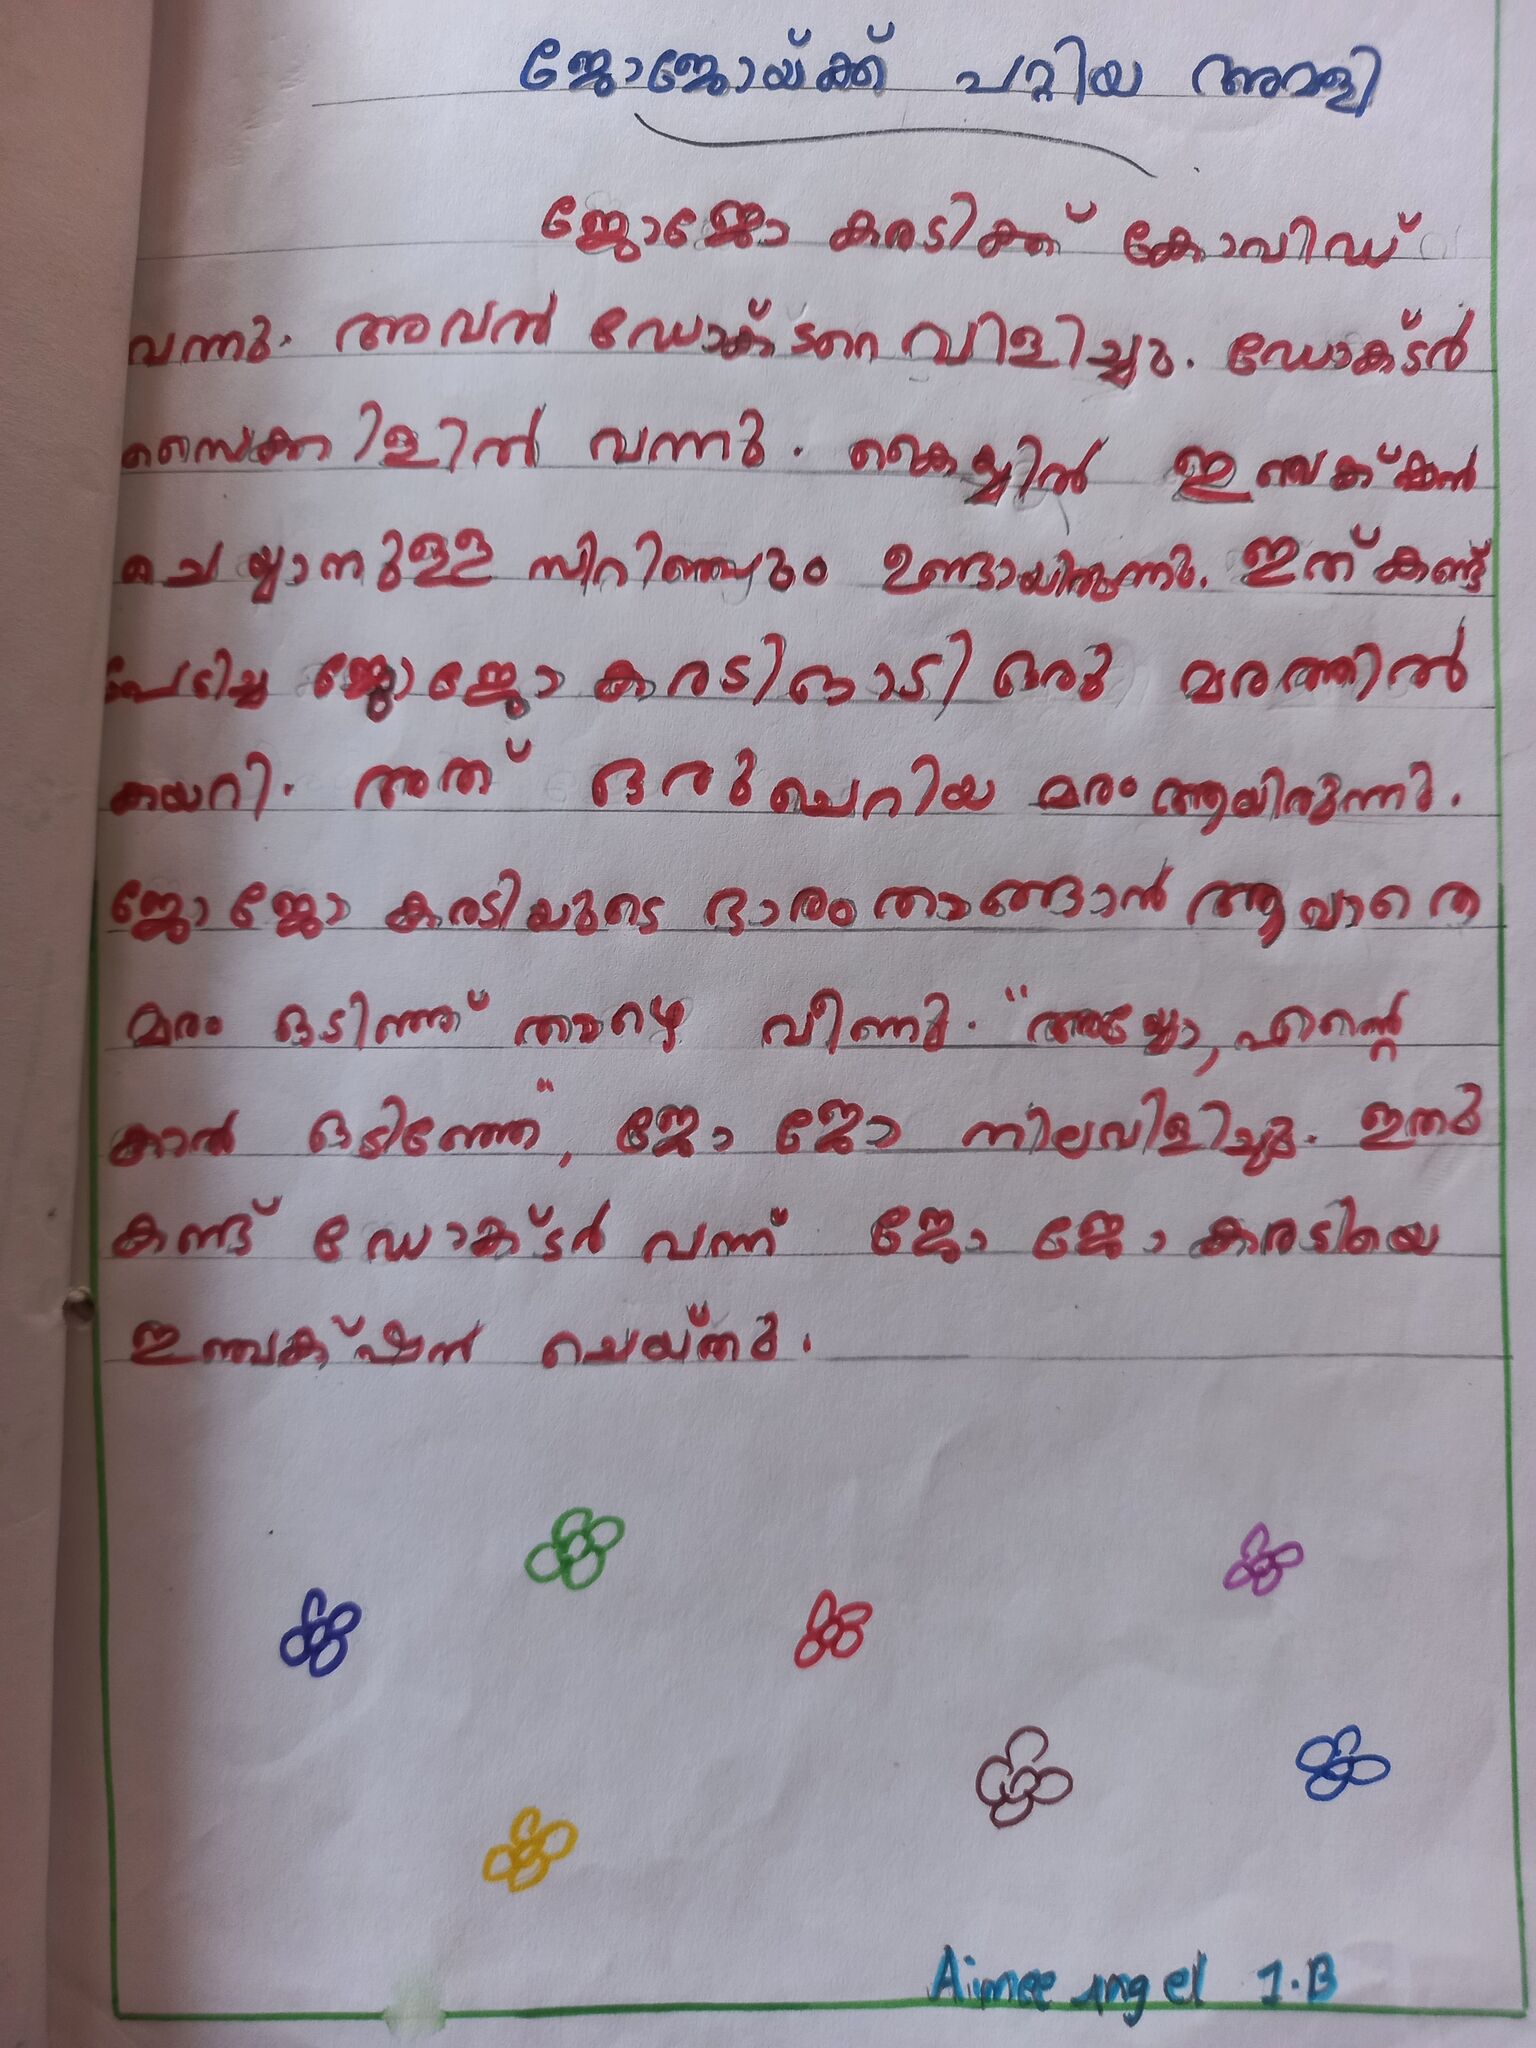 ജോജോയ്ക്ക് പറ്റിയ അമളി
ജോജോ കരടിക്ക് കോവിഡ്
വന്നു. അവൻ ഡോക്ടറെ വിളിച്ചു. ഡോക്ടർ
സൈക്കിളിൽ വന്നു. കൈയ്യിൽ ഇഞ്ചക്ഷൻ
ചെയ്യാനുള്ള സിറിഞ്ചും ഉണ്ടായിരുന്നു. ഇത് കണ്ട്
പേടിച്ച ജോജോ കരടി ഓടി ഒരു മരത്തിൽ
കയറി. അത് ഒരു ചെറിയ മരം ആയിരുന്നു.
ജോ ജോ കരടിയുടെ ഭാരം താങ്ങാൻ ആവാതെ
മരം ഒടിഞ്ഞ് താഴെ വീണു. "അയ്യോ, എന്റെ
കാൽ ഒടിഞ്ഞേ", ജോ ജോ നിലവിളിച്ചു. ഇതു
കണ്ട് ഡോക്ടർ വന്ന് ജോ ജോ കരടിയെ
ഇഞ്ചക്ഷൻ ചെയ്തു.
Aimee angel 1.B